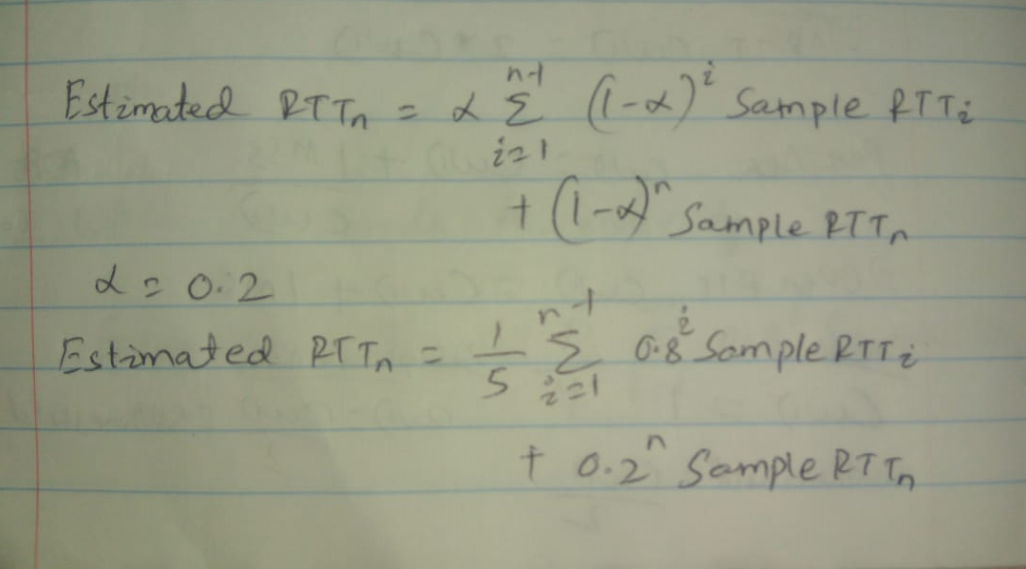 Estimated RTTₙ = α Σᵢ₌₁ⁿ⁻¹ (1-α)ⁱ Sample RTTᵢ
+ (1-α)ⁿ Sample RTTₙ
α = 0.2
Estimated RTTₙ = 1/5 Σᵢ₌₁ⁿ⁻¹ 0.8ⁱ Sample RTTᵢ
+ 0.2ⁿ Sample RTTₙ